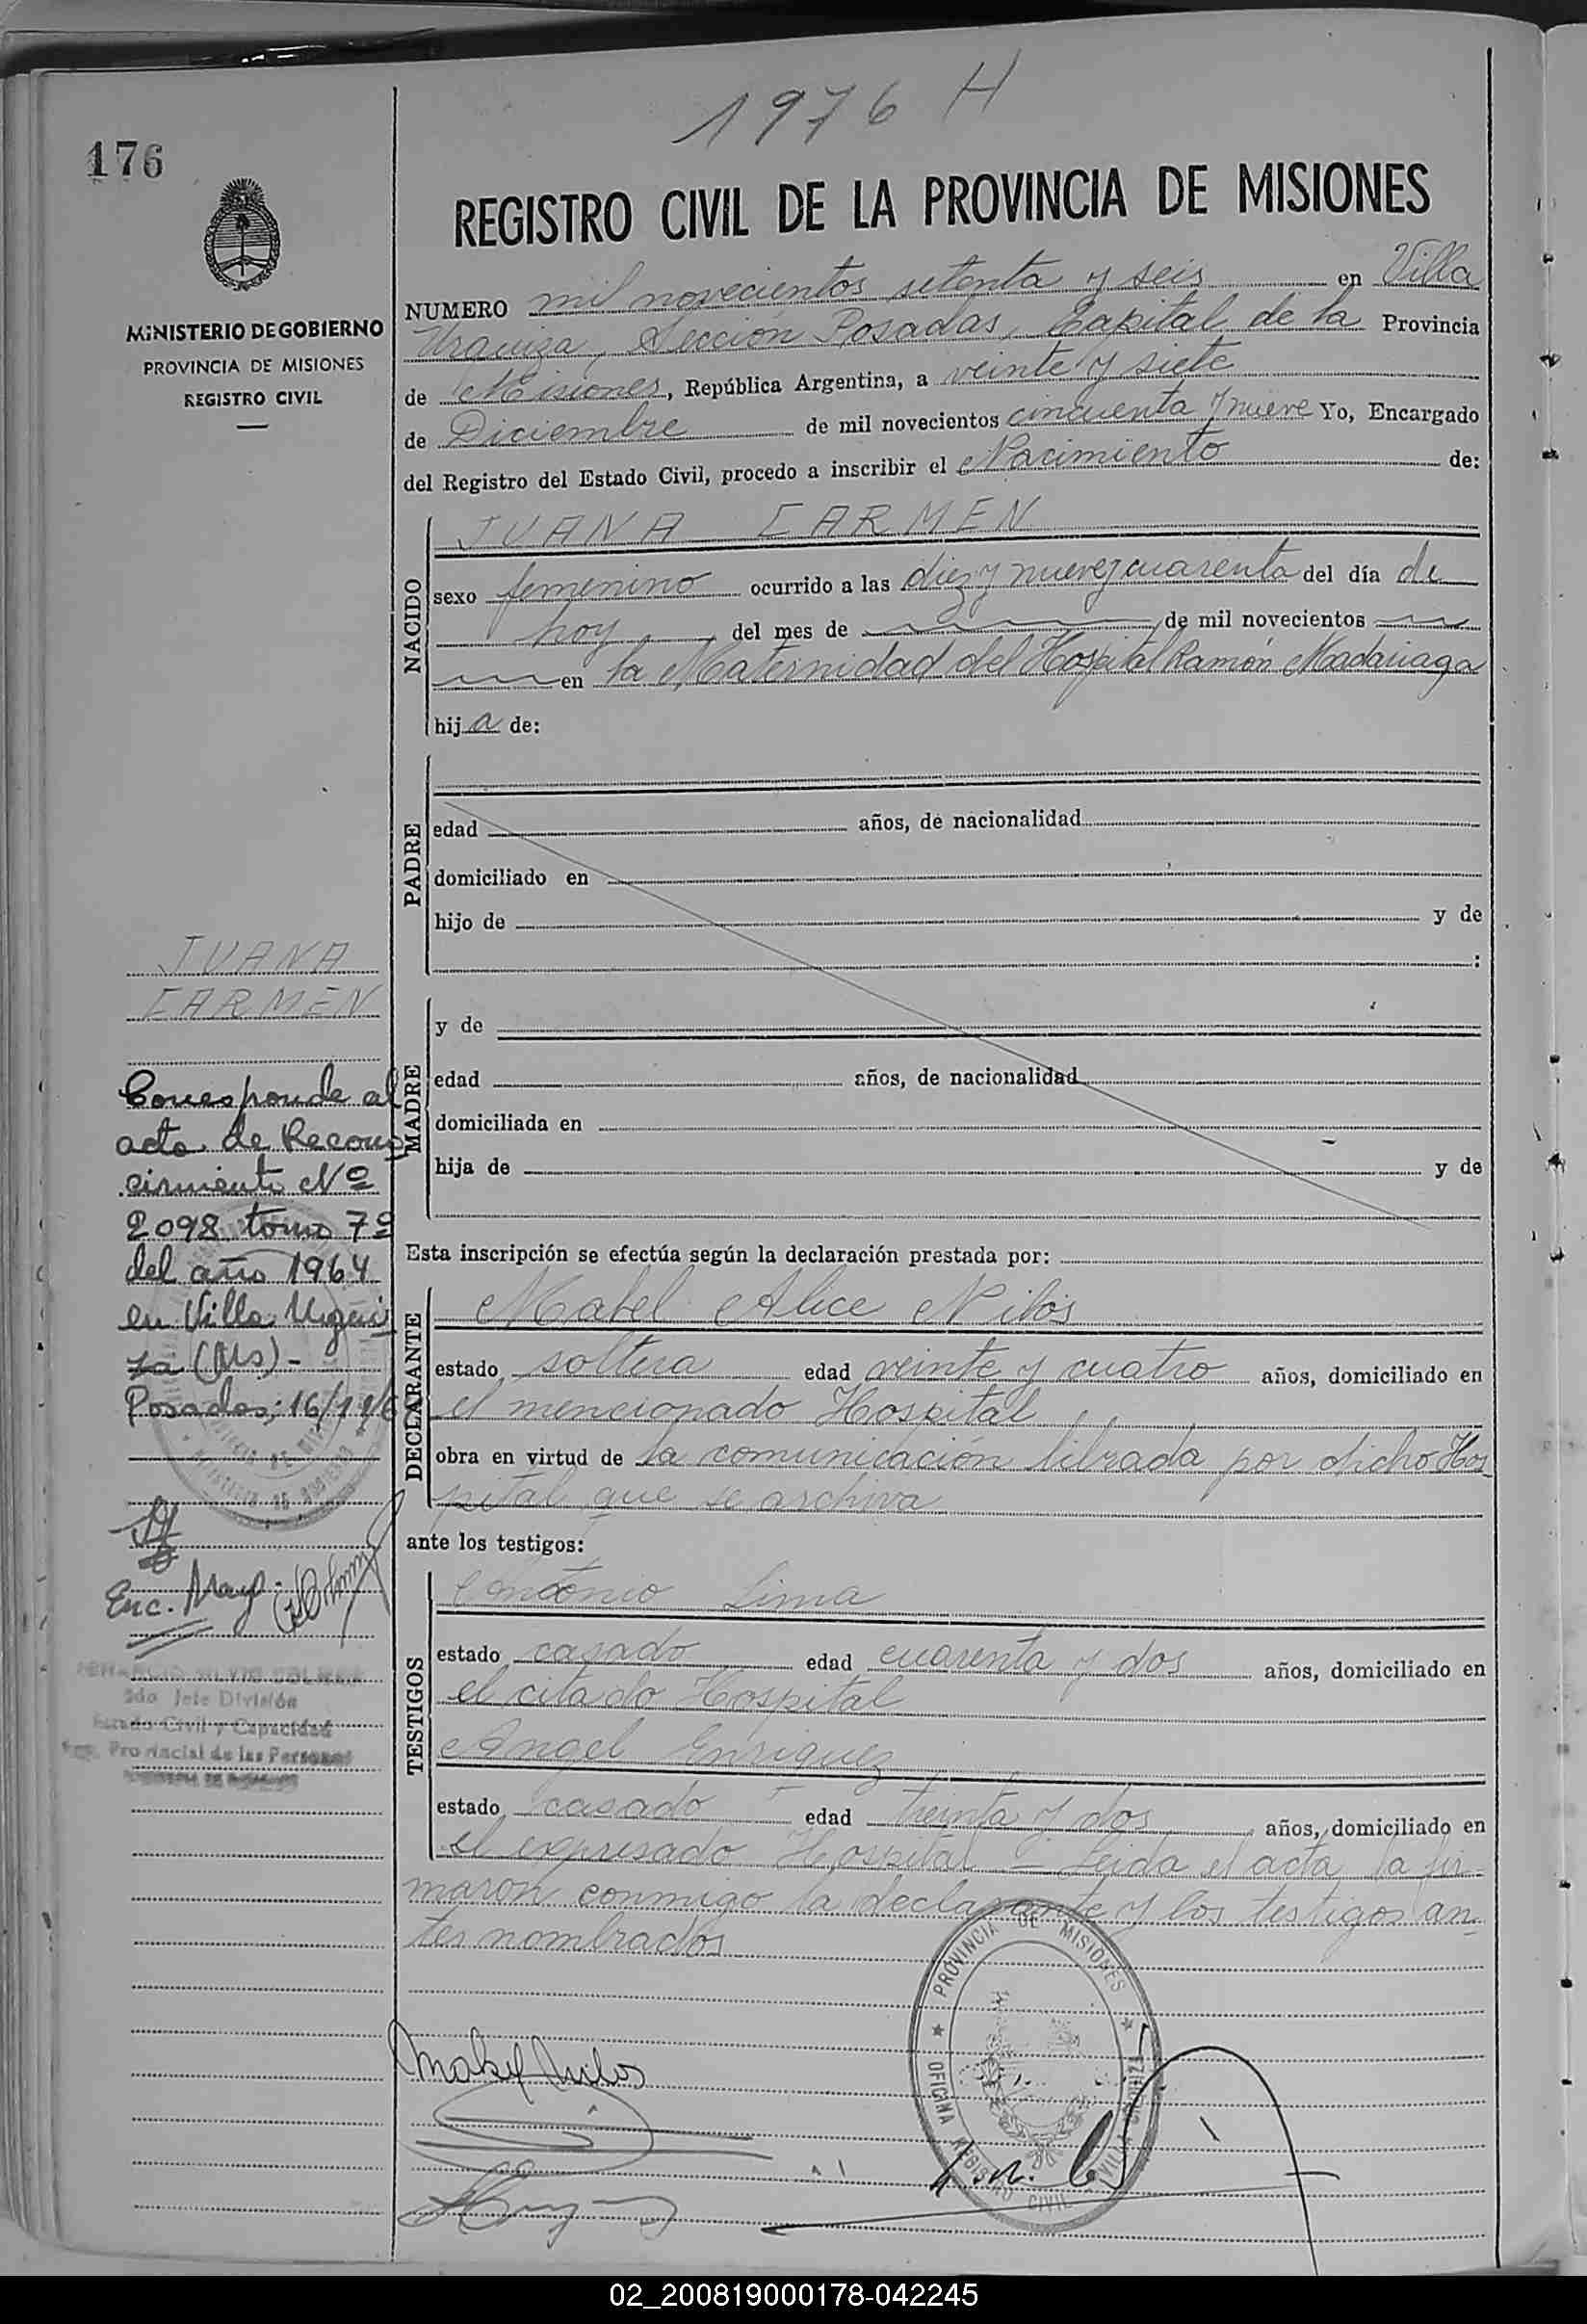 1976 H
176
REGISTRO CIVIL DE LA PROVINCIA DE MISIONES
MINISTERIO DE GOBIERNO
PROVINCIA DE MISIONES
REGISTRO CIVIL
NUMERO mil novecientos setenta y seis en Villa
Urquiza, Sección Posadas, Capital de la Provincia
de Misiones, República Argentina, a veinte y siete
de Diciembre de mil novecientos cincuenta y nueve Yo, Encargado
del Registro del Estado Civil, procedo a inscribir el Nacimiento de:
NACIDO
JUANA CARMEN
sexo femenino ocurrido a las diez y nueve y cuarenta del día de
hoy, del mes de de mil novecientos
en la Maternidad del Hospital Ramón Madariaga
hija de:
PADRE
edad años, de nacionalidad
domiciliado en
hijo de y de
:
MADRE
y de
edad años, de nacionalidad
domiciliada en
hija de y de
Esta inscripción se efectúa según la declaración prestada por:
DECLARANTE
Mabel Alice Nilos
estado soltera edad veinte y cuatro años, domiciliado en
el mencionado Hospital
obra en virtud de la comunicación librada por dicho Hos
pital que se archiva
ante los testigos:
TESTIGOS
Antonio Lima
estado casado edad cuarenta y dos años, domiciliado en
el citado Hospital
Angel Enriquez
estado casado edad treinta y dos años, domiciliado en
el expresado Hospital - Leida el acta la fir-
maron conmigo la declarante y los testigos an-
tes nombrados
Mabel Nilos
PROVINCIA DE MISIONES
OFICINA REGISTRO CIVIL
VILLA URQUIZA
JUANA
CARMEN
Corresponde al
acta de Recono
cimiento Nº
2098 tomo 7º
del año 1964
en Villa Urqui
za (Ms) -
Posadas; 16/
Enc. Mayo.
2do Jefe División
Estado Civil y Capacidad
Provincial de las Personas
02_200819000178-042245